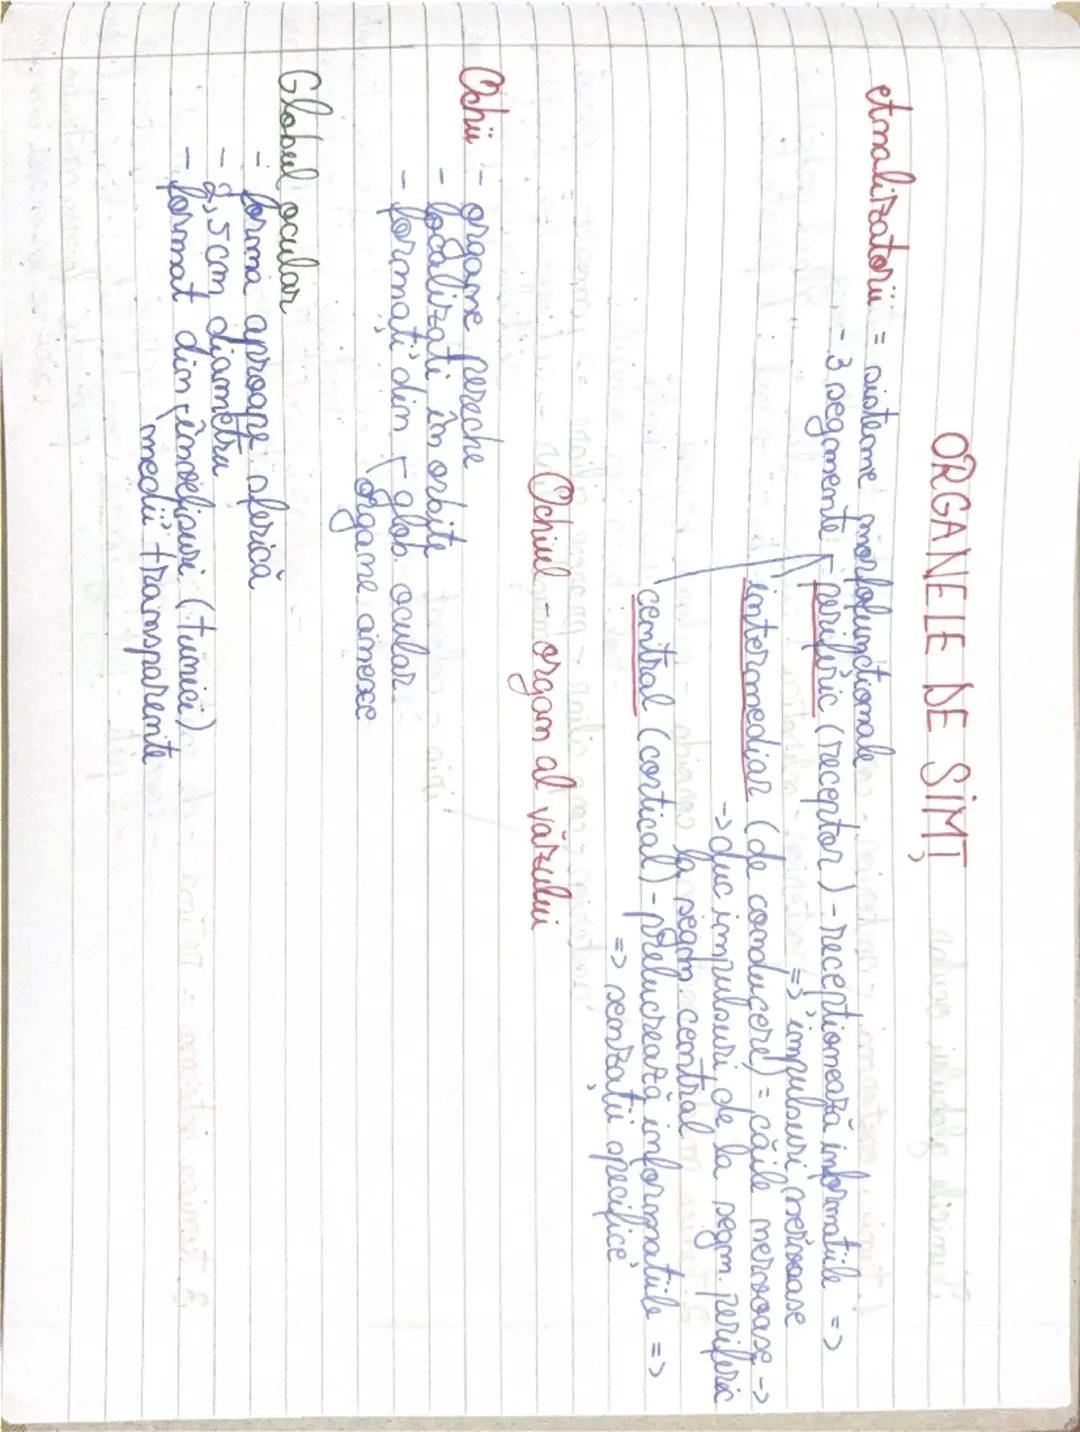 ORGANELE DE SIMȚ
Analizatorii = sisteme morfofuncționale
- 3 segmente periferic (receptor) - recepționează informațiile =>
=> impulsuri nervoase
intermediar (de conducere) = căile nervoase ->
-> duc impulsuri de la segm. periferic
la segm. central
central (cortical) - prelucrează informațiile =>
=> senzații specifice
Ochiul - organ al văzului
Ochii - organe pereche
- localizați în orbite
- formați din - glob. ocular
organe anexe
Globul ocular
- forma aproape sferică
- 2,5 cm diametru
- format din învelișuri (tunici)
medii transparente